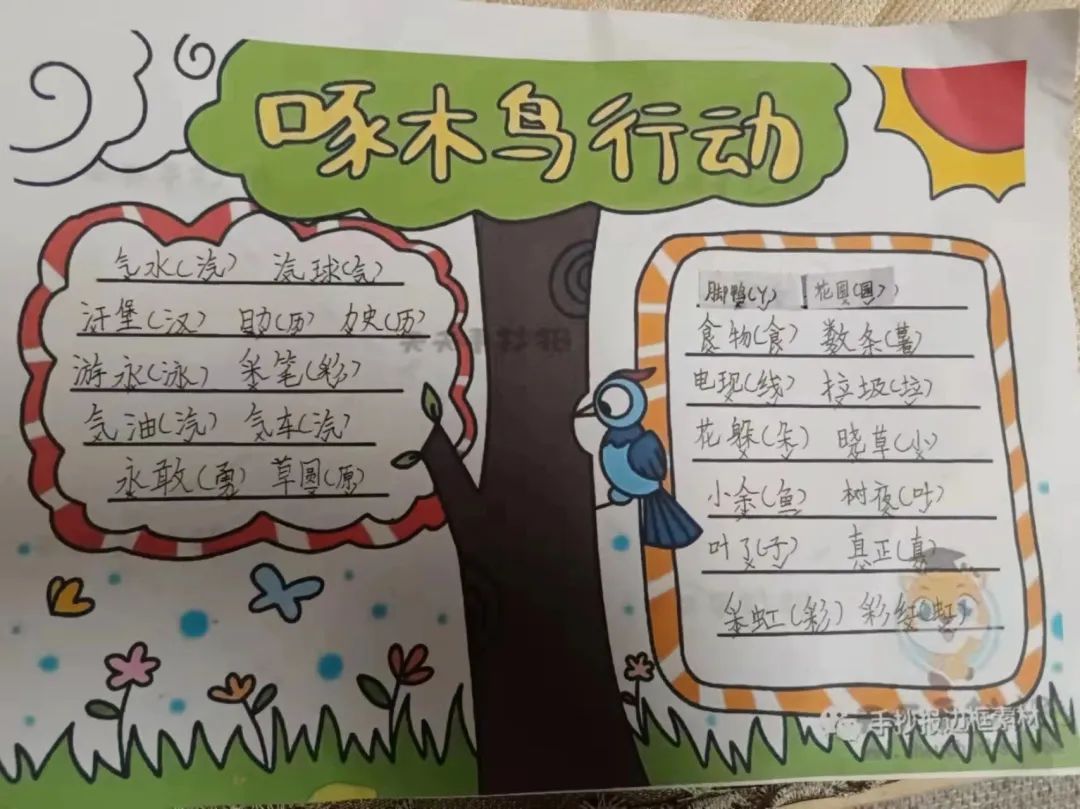 啄木鸟行动
气水(汽) 汽球(气)
汗堡(汉) 助(历) 史(历)
游永(泳) 采笔(彩)
气油(汽) 气车(汽)
永敢(勇) 草圆(原)
脚鸭(丫) 花圆(园)
食物(食) 数条(薯)
电现(线) 垃圾(垃)
花躲(朵) 晓草(小)
小余(鱼) 树夜(叶)
叶了(子) 真正(真)
采虹(彩) 彩红(虹)
手抄报边框素材